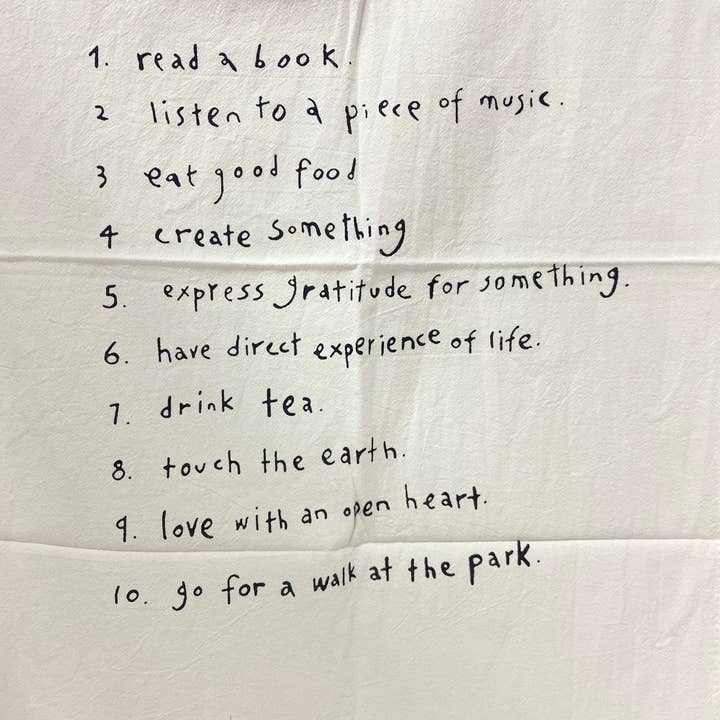 1. read a book.
2 listen to a piece of music.
3 eat good food
4 create something
5. express gratitude for something.
6. have direct experience of life.
7. drink tea.
8. touch the earth.
9. love with an open heart.
10. go for a walk at the park.